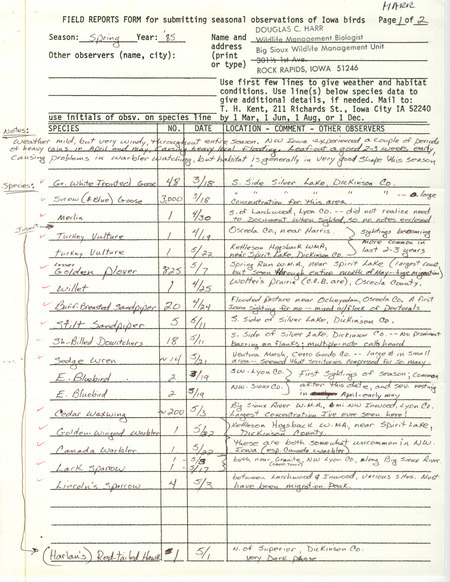 HARR
FIELD REPORTS FORM for submitting seasonal observations of Iowa birds Page 1 of 2
Season: Spring Year: '85
Name and address (print or type)
DOUGLAS C. HARR
Wildlife Management Biologist
Big Sioux Wildlife Management Unit
301½ 1st Ave.
ROCK RAPIDS, IOWA 51246
Other observers (name, city):
Use first few lines to give weather and habitat
conditions. Use line(s) below species data to
give additional details, if needed. Mail to:
T. H. Kent, 211 Richards St., Iowa City IA 52240
by 1 Mar, 1 Jun, 1 Aug, or 1 Dec.
use initials of obsv. on species line
SPECIES NO. DATE LOCATION - COMMENT - OTHER OBSERVERS
Notes:
Weather mild, but very windy, throughout entire season. NW Iowa experienced a couple of periods
of heavy rains in April and May, causing heavy local flooding. Leaf-out a good 2-3 weeks early
causing problems in warbler watching, but habitat is generally in very good shape this season
Species:
Gr. White Fronted Goose 48 3/18 S. Side Silver Lake, Dickinson Co.
Snow (& Blue) Goose 3,000 3/18 " " " " -- a large
concentration for this area.
Merlin 1 4/30 S. of Larchwood, Lyon Co. -- did not realize need
to Document when sighted, so no notes enclosed
Insert
Turkey Vulture 1 4/19 Osceola Co., near Harris.
Turkey Vulture 1 5/22 Kettleson Hogsback WMA,
near Spirit Lake, Dickinson Co.
sightings becoming
more common in
last 2-3 years
Lesser
Golden Plover 825 5/7 Spring Run W.M.A., near Spirit Lake (largest count,
but seen through entire month of May - huge migration)
Willet 1 4/25 Wolter's Prairie (C.C.B. are), Osceola County.
Buff-Breasted Sandpiper 20 4/24 Flooded pasture near Ocheyedan, Osceola Co. A first
Iowa sighting for me - mixed w/flock of Pectorals
Stilt Sandpiper 5 5/11 S. Side of Silver Lake, Dickinson Co.
Sh.-Billed Dowitchers 18 5/11 S. Side of Silver Lake, Dickinson Co. -- No prominent
barring on flanks; multiple-note calls heard
Sedge Wren ~14 5/21 Ventura Marsh, Cerro Gordo Co. -- large # in small
area -- seemed that territories compressed for so many
E. Bluebird 2 3/19 SW. Lyon Co.
E. Bluebird 2 3/19 NW. Sioux Co.
First sightings of season; common
after this date, and seen nesting
in April-early may
Cedar Waxwing ~200 5/3 Big Sioux River W.M.A., 6 mi NW Inwood, Lyon Co.
Largest concentration I've ever seen here!
Golden-Winged Warbler 1 5/22 Kettleson Hogsback W.M.A, near Spirit Lake,
Dickinson County
Canada Warbler 1 5/22 These are both somewhat uncommon in NW.
Iowa (esp. Canada Warbler)
Lark Sparrow 1 5/8
1 5/17 both near Granite, NW Lyon Co., along Big Sioux River
Lincoln's Sparrow 4 5/3 between Larchwood & Inwood, various sites. Must
have been migration peak.
(Harlan's) Red-tailed Hawk 1 5/1 N. of Superior, Dickinson Co.
very Dark phase